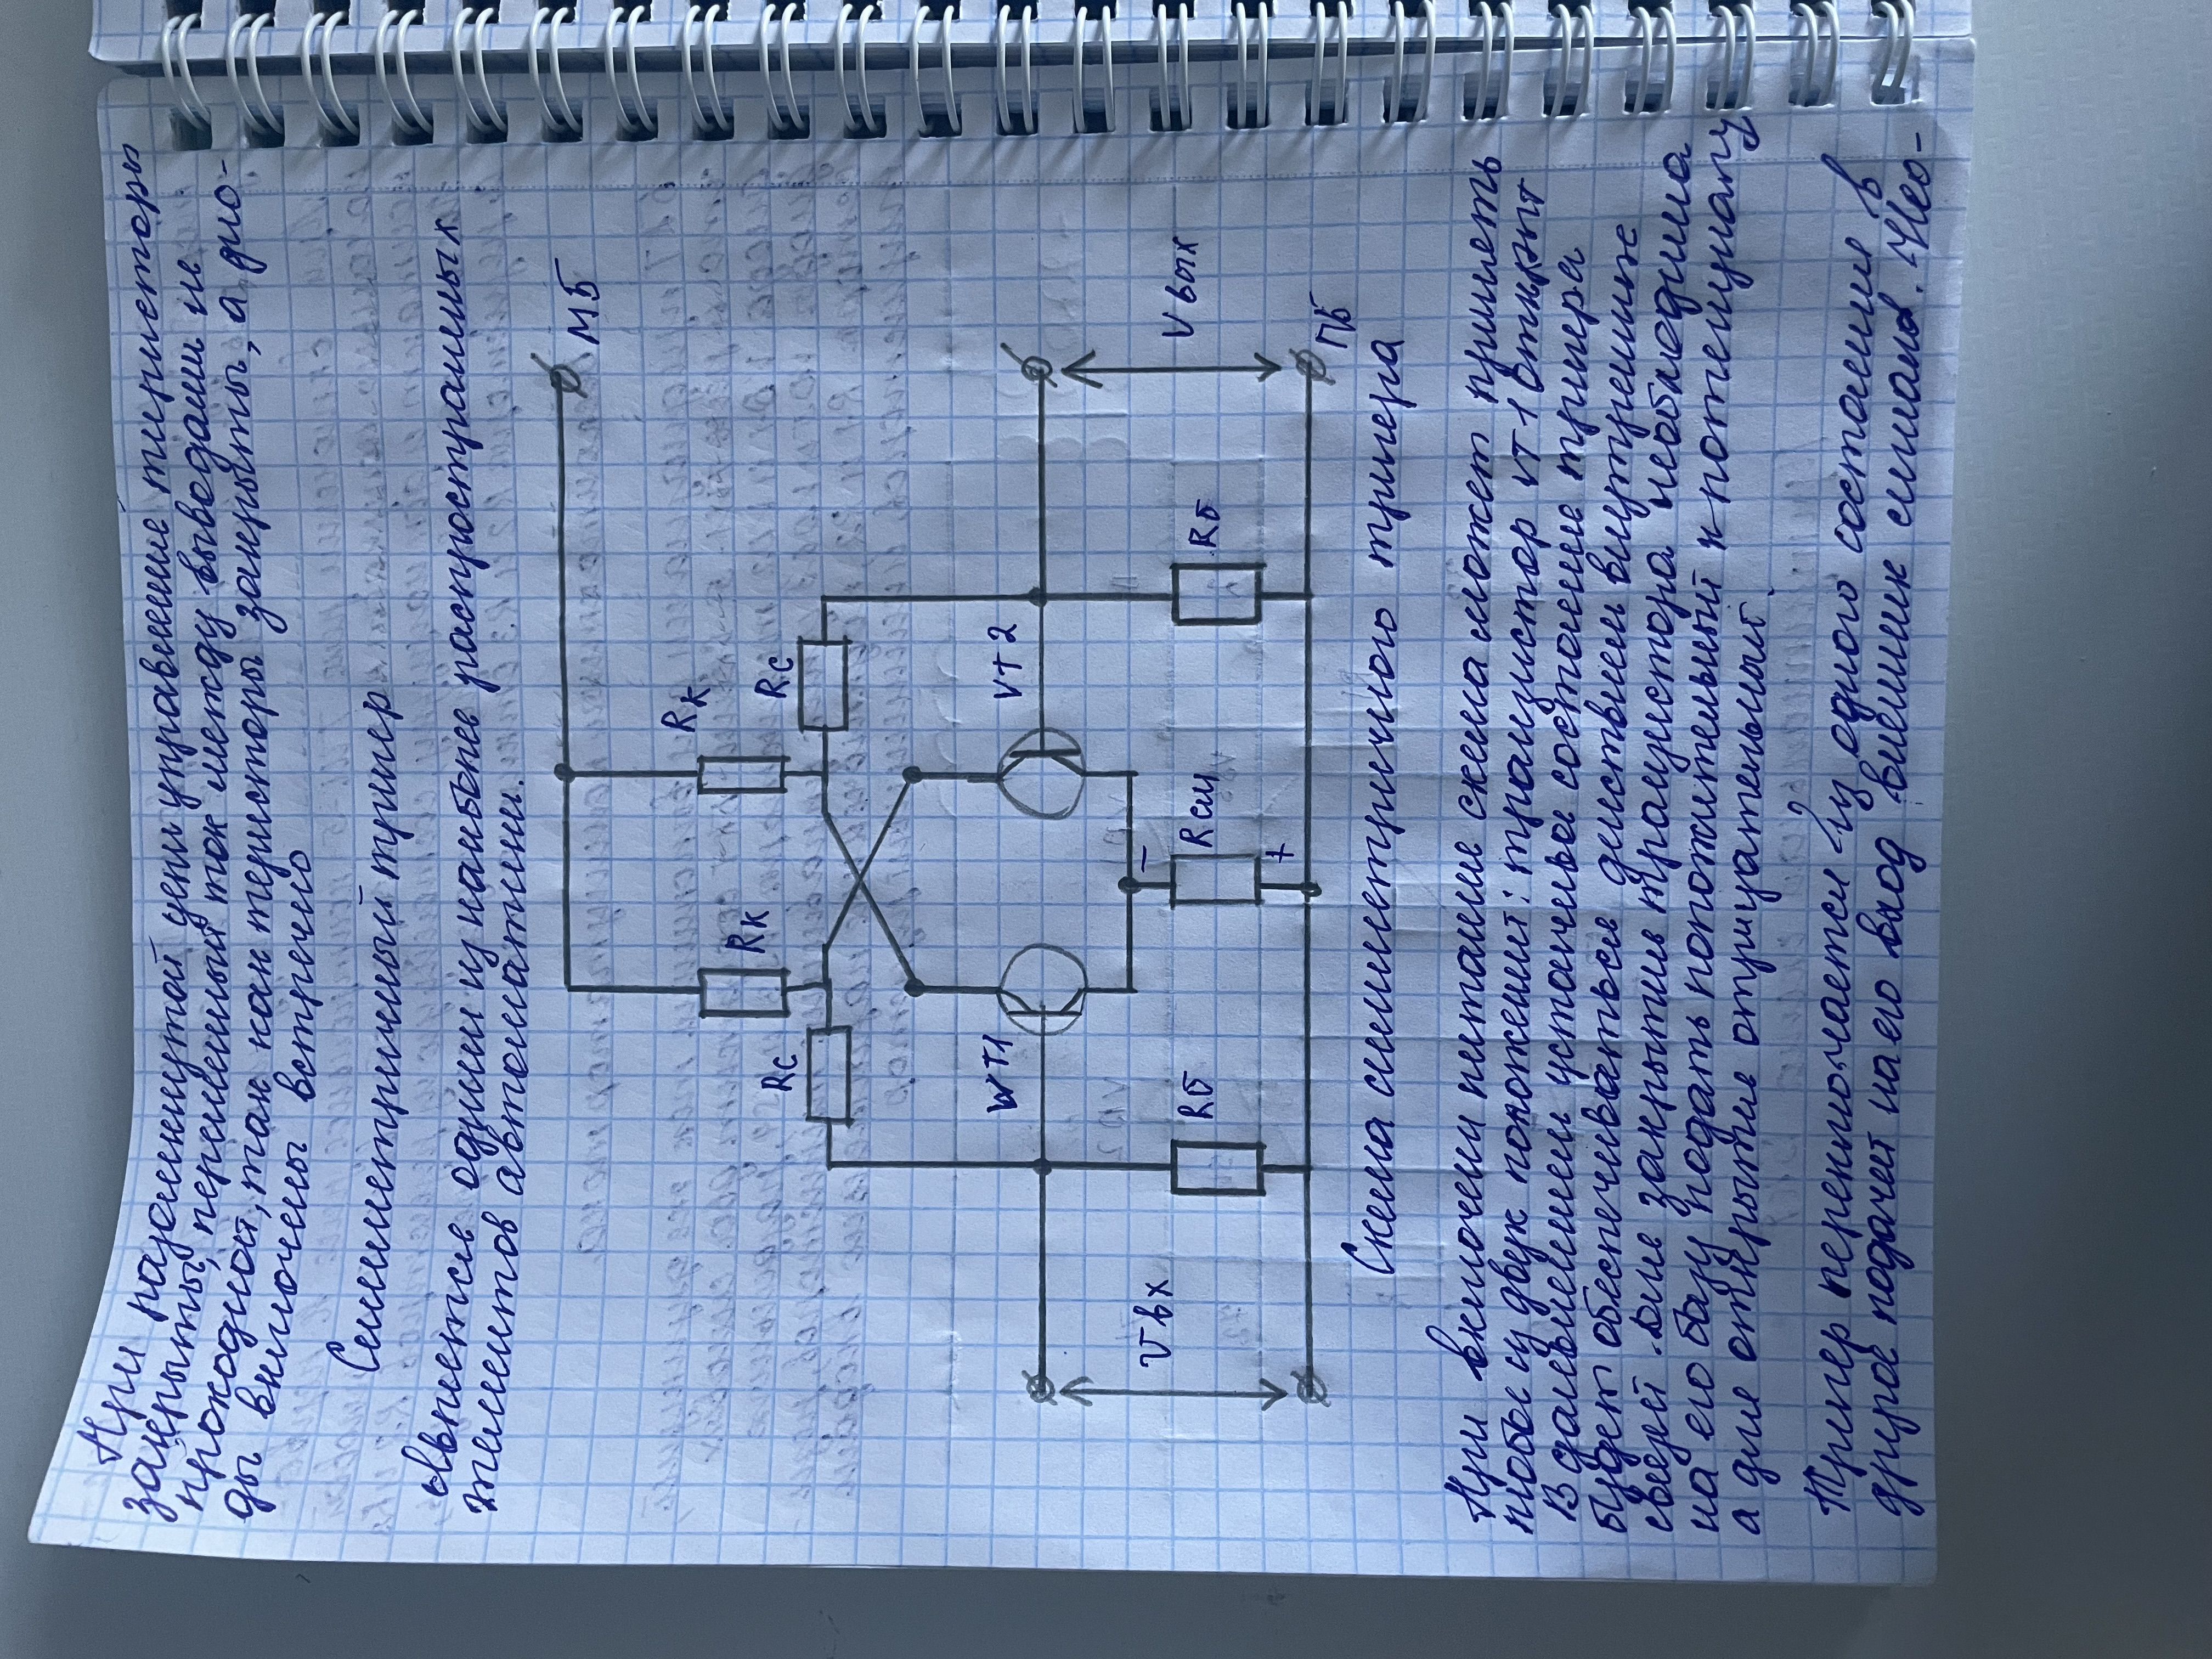 При разомкнутой цепи управление тиристоры
закрыты, переменный ток между выводами не
проходной, так как теристоры закрыты, а дио-
ды включены встречно
Симметричный тригер
является одним из наиболее распространных
элементов автоматики.
МБ
Rк
Rк
Rс
Rс
VT1
VT2
Vвх
Rб
Rсм
Rб
Vвых
−
+
ПБ
Схема симметричного тригера
При включени питание схема может принеть
любое из двух положений: транзистор VT1 открыт
В дальнейшем устойчивое состояние тригера
будет обеспечиваться действием внутренние
связей. Для закрытие транзистора необходима
на его базу подать положительный к потенциалу
а для открытие отрицательный.
Тригер переключается из одного состояние в
другое подачей на его вход внешних сигнала. Нео-